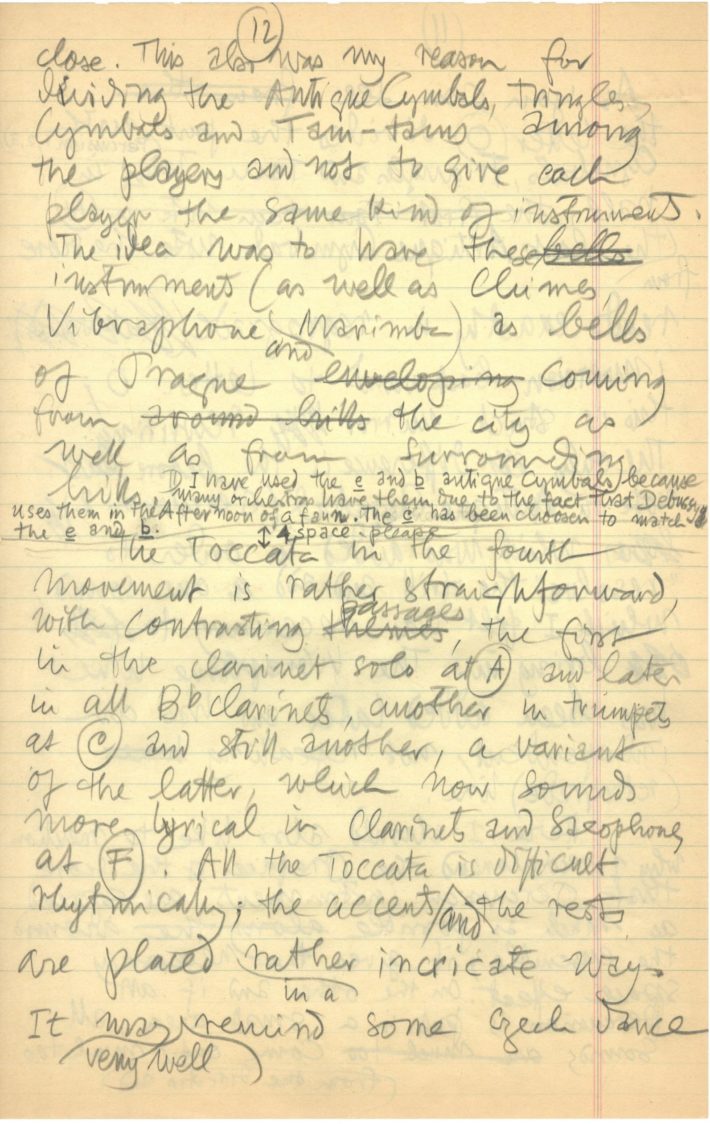 12
close. This also was my reason for
dividing the Antique Cymbals, Tringles,
Cymbals and Tam-tams among
the players and not to give each
player the same kind of instrument.
The idea was to have these bells
instrument (as well as Chimes,
Vibraphone and Marimba) as bells
of Prague enveloping coming
from around hills the city as
well as from surrounding
hills. 1) I have used the e and b antique Cymbals) because
many orchestras have them due to the fact that Debussy
uses them in the Afternoon of a faun. The c has been choosen to match
the e and b. ↕ 4 space please
The Toccata in the fourth
movement is rather straighforward,
with contrasting themes passages, the first
in the clarinet solo at A and later
in all Bb clarinets, another in trumpets
at C and still another, a variant
of the latter, which now sounds
more lyrical in Clarinets and Saxophones
at F. All the Toccata is difficult
rhytmically; the accent and the rests
are placed rather in a incricate way.
It may very well remind some Czech dance